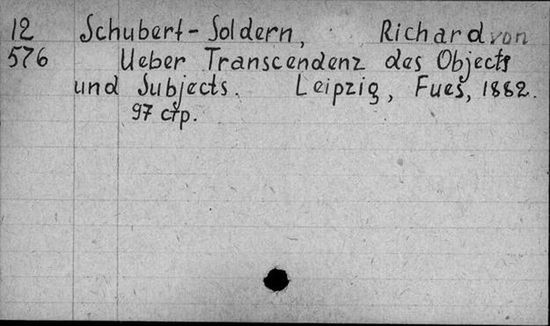 12 Schubert-Soldern, Richard von
576 Ueber Transcendenz des Objects
und Subjects. Leipzig, Fues, 1882.
97 стр.